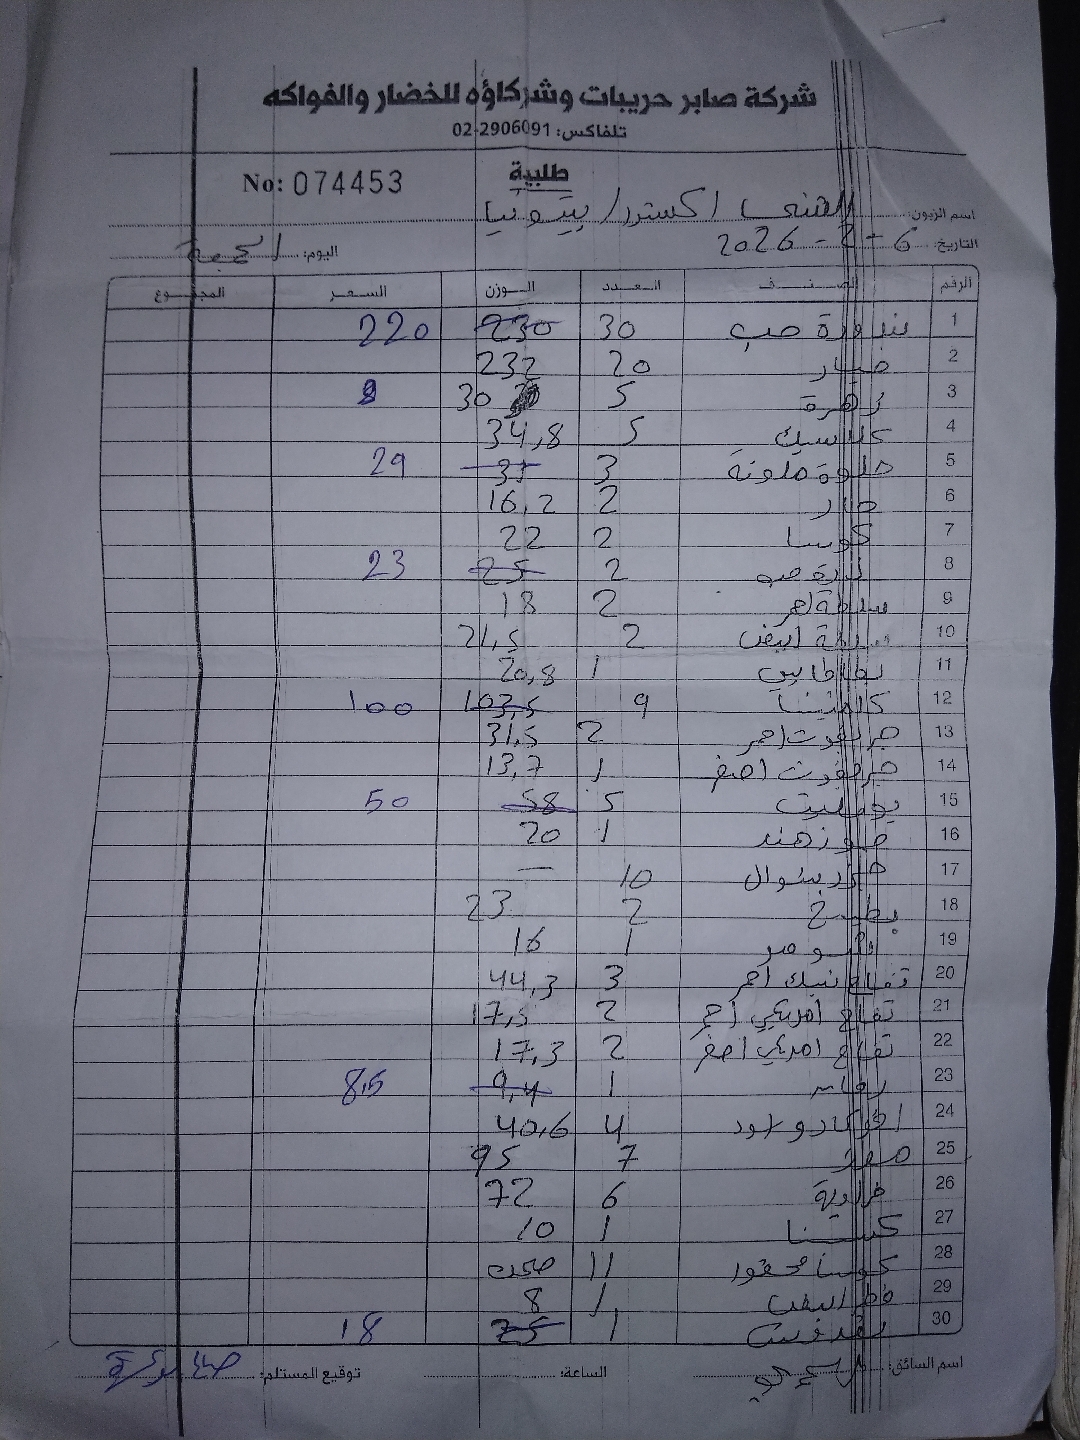 شركة صابر حريبات وشركاؤه للخضار والفواكه
تلفاكس: 02-2906091
طلبية
No: 074453
اسم الزبون: اكسترا / بيتونيا
التاريخ: 6-2-2026 اليوم: الجمعة
الرقم الصنف العدد الوزن السعر المجموع
1 بندورة حب 30 230 220
2 خيار 20 232
3 زهرة 5 30 8
4 كلاسيك 5 34,8
5 حلوة ملونة 3 31 29
6 حار 2 16,2
7 كوسا 2 22
8 ذرة حب 2 25 23
9 بطاطا احمر 2 18
10 ابيض 2 21,5
11 1 20,8
12 كلمنتينا 9 103,5 100
13 جريفوت احمر 2 31,5
14 جريفوت اصفر 1 13,7
15 بوميليت 5 58 50
16 جوز هند 1 20
17 10 —
18 بطيخ 2 23
19 1 16
20 تفاح احمر 3 44,3
21 تفاح امريكي احمر 2 17,5
22 تفاح امريكي اصفر 2 17,3
23 1 9,4 8,5
24 افوكادو اسود 4 40,6
25 موز 7 95
26 فراولة 6 72
27 كستنا 1 10
28 كوسا محفور 11 صحن
29 فطر ابيض 1 8
30 بقدونس 1 25 18
اسم السائق: الساعة: توقيع المستلم: